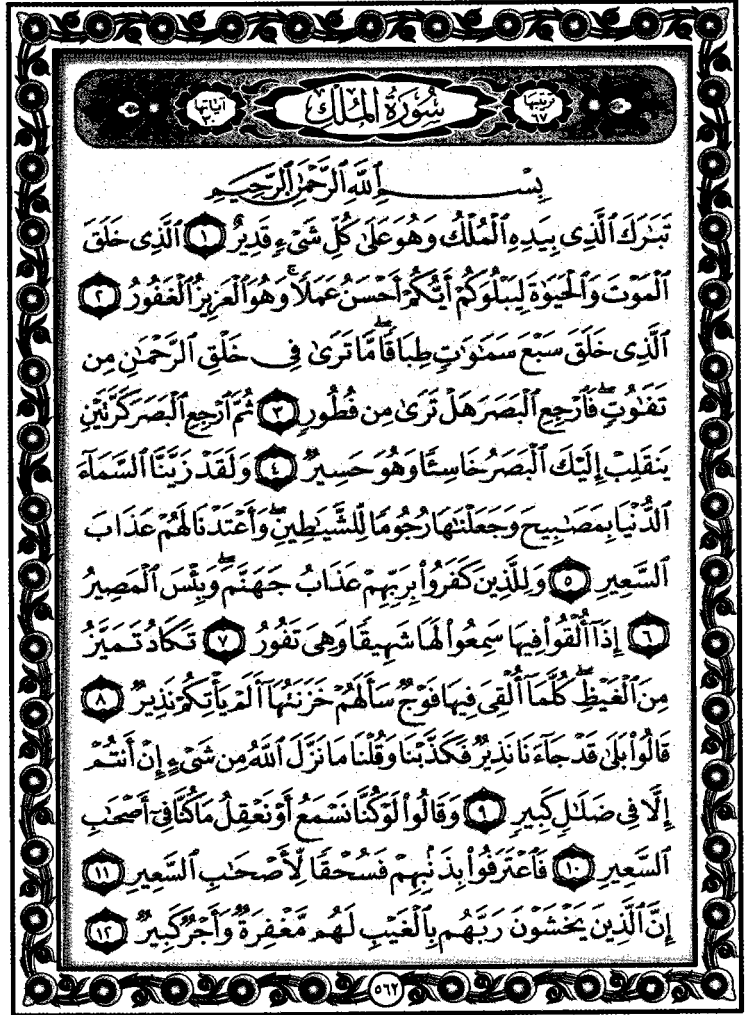 ترتيبها ٦٧ سُورَةُ المُلْكِ آياتها ٣٠
بِسْمِ ٱللَّهِ ٱلرَّحْمَٰنِ ٱلرَّحِيمِ
تَبَٰرَكَ ٱلَّذِى بِيَدِهِ ٱلْمُلْكُ وَهُوَ عَلَىٰ كُلِّ شَىْءٍ قَدِيرٌ ١ ٱلَّذِى خَلَقَ
ٱلْمَوْتَ وَٱلْحَيَوٰةَ لِيَبْلُوَكُمْ أَيُّكُمْ أَحْسَنُ عَمَلًا ۚ وَهُوَ ٱلْعَزِيزُ ٱلْغَفُورُ ٢
ٱلَّذِى خَلَقَ سَبْعَ سَمَٰوَٰتٍ طِبَاقًا ۖ مَّا تَرَىٰ فِى خَلْقِ ٱلرَّحْمَٰنِ مِن
تَفَٰوُتٍ ۖ فَٱرْجِعِ ٱلْبَصَرَ هَلْ تَرَىٰ مِن فُطُورٍ ٣ ثُمَّ ٱرْجِعِ ٱلْبَصَرَ كَرَّتَيْنِ
يَنقَلِبْ إِلَيْكَ ٱلْبَصَرُ خَاسِئًا وَهُوَ حَسِيرٌ ٤ وَلَقَدْ زَيَّنَّا ٱلسَّمَآءَ
ٱلدُّنْيَا بِمَصَٰبِيحَ وَجَعَلْنَٰهَا رُجُومًا لِّلشَّيَٰطِينِ ۖ وَأَعْتَدْنَا لَهُمْ عَذَابَ
ٱلسَّعِيرِ ٥ وَلِلَّذِينَ كَفَرُوا۟ بِرَبِّهِمْ عَذَابُ جَهَنَّمَ ۖ وَبِئْسَ ٱلْمَصِيرُ
٦ إِذَآ أُلْقُوا۟ فِيهَا سَمِعُوا۟ لَهَا شَهِيقًا وَهِىَ تَفُورُ ٧ تَكَادُ تَمَيَّزُ
مِنَ ٱلْغَيْظِ ۖ كُلَّمَآ أُلْقِىَ فِيهَا فَوْجٌ سَأَلَهُمْ خَزَنَتُهَآ أَلَمْ يَأْتِكُمْ نَذِيرٌ ٨
قَالُوا۟ بَلَىٰ قَدْ جَآءَنَا نَذِيرٌ فَكَذَّبْنَا وَقُلْنَا مَا نَزَّلَ ٱللَّهُ مِن شَىْءٍ إِنْ أَنتُمْ
إِلَّا فِى ضَلَٰلٍ كَبِيرٍ ٩ وَقَالُوا۟ لَوْ كُنَّا نَسْمَعُ أَوْ نَعْقِلُ مَا كُنَّا فِىٓ أَصْحَٰبِ
ٱلسَّعِيرِ ١٠ فَٱعْتَرَفُوا۟ بِذَنۢبِهِمْ فَسُحْقًا لِّأَصْحَٰبِ ٱلسَّعِيرِ ١١
إِنَّ ٱلَّذِينَ يَخْشَوْنَ رَبَّهُم بِٱلْغَيْبِ لَهُم مَّغْفِرَةٌ وَأَجْرٌ كَبِيرٌ ١٢
٥٦٢